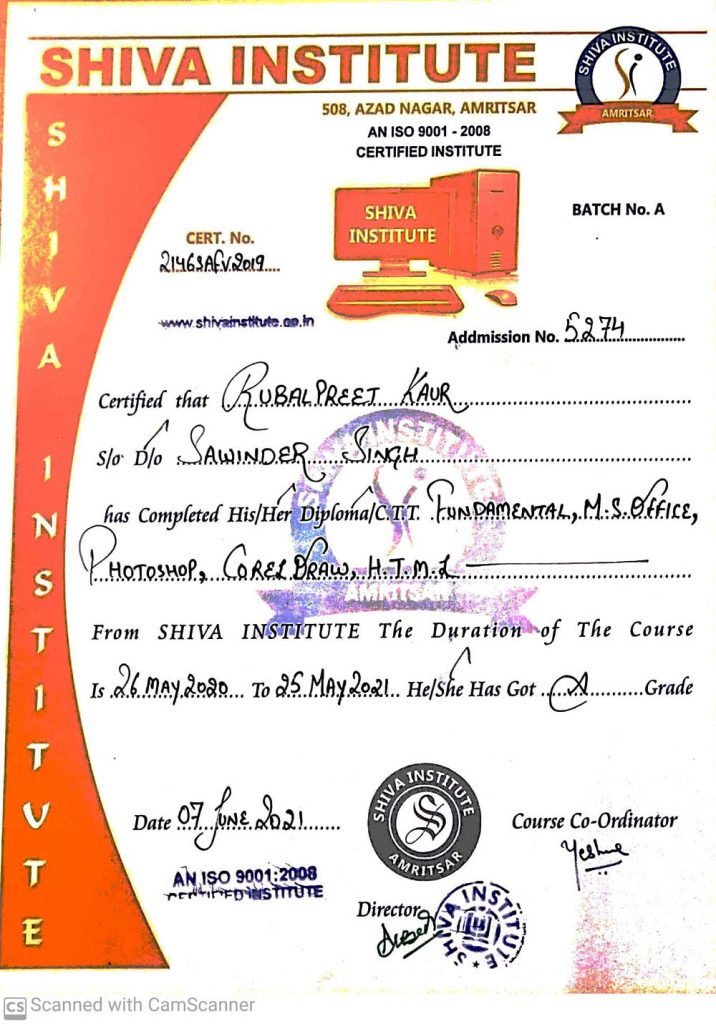 SHIVA INSTITUTE
SHIVA INSTITUTE
AMRITSAR
508, AZAD NAGAR, AMRITSAR
AN ISO 9001 - 2008
CERTIFIED INSTITUTE
SHIVA INSTITUTE
SHIVA
INSTITUTE
BATCH No. A
CERT. No.
www.shivainstitute.co.in
Addmission No. 5274
Certified that RUBALPREET KAUR
S/o D/o SAWINDER SINGH
has Completed His/Her Diploma/C.T.T. FUNDAMENTAL, M.S.OFFICE,
PHOTOSHOP, COREL DRAW, H.T.M.L
SHIVA INSTITUTE
AMRITSAR
From SHIVA INSTITUTE The Duration of The Course
Is 26 MAY 2020 To 25 MAY 2021 He/She Has Got A Grade
Date 07 JUNE 2021
SHIVA INSTITUTE
AMRITSAR
Course Co-Ordinator
AN ISO 9001:2008
CERTIFIED INSTITUTE
Director
SHIVA INSTITUTE
CS Scanned with CamScanner